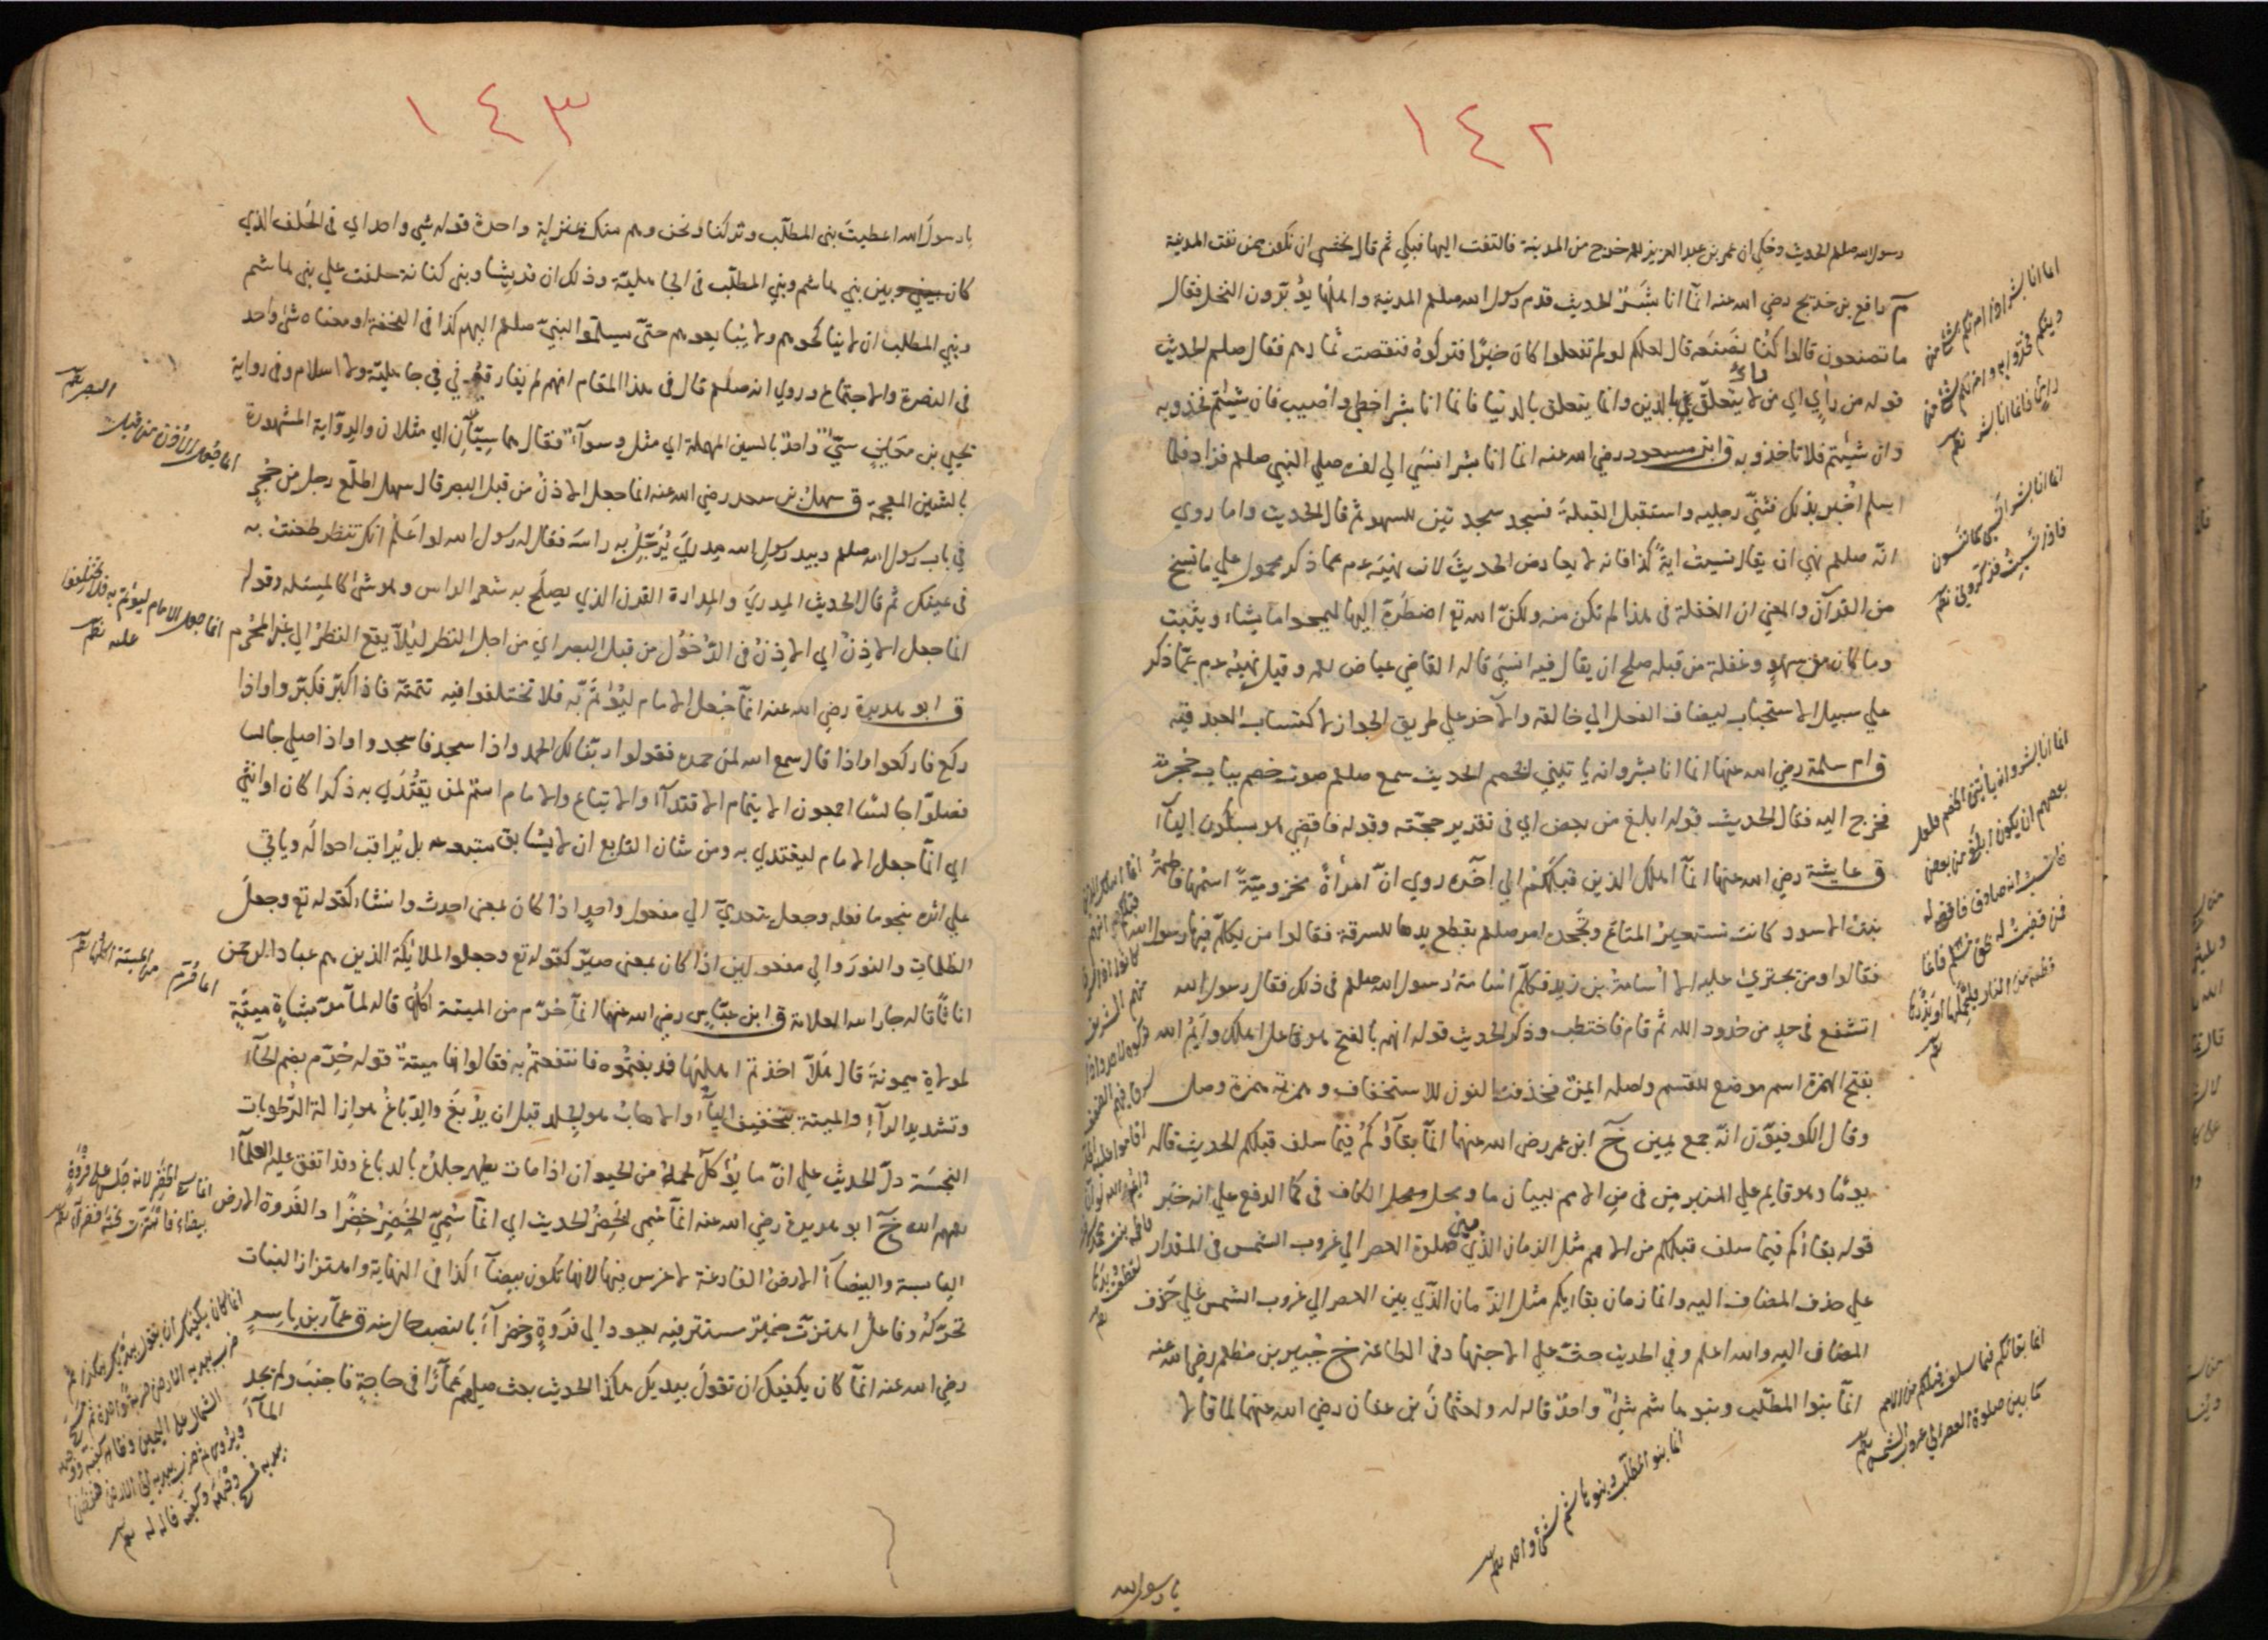 ١٤٢
رسول الله صلعم الحديث وحكي ان عمر بن عبد العزيز لما خرج من المدينة فالتفت اليها فبكي ثم قال نخشى ان نكون ممن نفت المدينة
م رافع بن خديج رضي الله عنه انما انا بشر الحديث قدم رسول الله صلعم المدينة واهلها يؤبرون النخل فقال
ما تصنعون قالوا كنا نصنعه قال لعلكم لو لم تفعلوا كان خيرا فتركوه فنقصت ثمارهم فقال صلعم الحديث
قوله من راي اي من لا يتعلق بالدين وانما يتعلق بالدنيا فانما انا بشر اخطئ واصيب فان شيئتم فخذوبه
وان شيئتم فلا تاخذو به ق ابن مسعود رضي الله عنه انما انا بشر انسي الي اخره صلي النبي صلعم فزاد فلما
اسلم اخبر بذلك فثني رجليه واستقبل القبلة فسجد سجدتين للسهو ثم قال الحديث واما روي
انه صلعم نهي ان يقال نسيت اية كذا فانه لا يعارض الحديث لان نهيه عم عما ذكر محمول علي ما نسخ
من القرآن والمعني ان الغفلة في هذا لم تكن منه ولكن الله تع اضطره اليها ليمحو اما يشاء ويثبت
وما كان من سهو وغفلة من قبله صلح ان يقال فيه انسي قاله القاضي عياض رحمه وقيل نهيه عم عما ذكر
علي سبيل الاستحباب ليضاف الفعل الي خالقه والآخر علي طريق الجواز لاكتساب العبد فيه
ق ام سلمة رضي الله عنها انما انا بشر وانه يا تيني الخصم الحديث سمع صلعم صوت خصم بباب حجرته
فخرج اليه فقال الحديث قوله ابلغ من بعض اي في تقدير حجته وقوله فاقضي هو بسكون اليآء
ق عايشة رضي الله عنها انمآ اهلك الذين قبلكم الي آخره روي ان امرأة مخزومية اسمها فاطمة
بنت الاسود كانت تستعير المتاع وتجحد امر صلعم بقطع يدها للسرقة فقالوا من يكلم فيها رسول الله
فقالوا ومن يجتري عليه الا اسامة بن زيد فكلم اسامة رسول الله صلعم في ذلك فقال رسول الله
اتشفع في حد من حدود الله ثم قام فاختطب وذكر الحديث قوله انهم بالفتح هو فاعل اهلك وايم الله
بفتح الهمزة اسم موضع للقسم واصله ايمن فحذفت النون للاستخفاف وهمزته همزة وصل
وقال الكوفيون انه جمع يمين خ ابن عمر رضي الله عنهما انما بقآؤكم فيما سلف قبلكم الحديث قاله
يوما وهو قايم علي المنبر من في من الامم لبيان ما ومحل الكاف في كما الرفع علي انه خبر
قوله بقاءكم فيما سلف قبلكم من الامم مثل الزمان الذي بين صلوة العصر الي غروب الشمس في المقدار
علي حذف المضاف اليه وانما زمان بقايكم مثل الزمان الذي بين العصر الي غروب الشمس علي حذف
المضاف اليه والله اعلم وفي الحديث حث علي الاجتهاد في الطاعة خ جبير بن مطعم رضي الله عنه
انما بنوا المطلب وبنو هاشم شئ واحد قاله له ولعثمان بن عفان رضي الله عنهما لما قالا
يا رسول الله
اما انا بشر اذا امرتكم بشئ من
دينكم فخذوا به واذا امرتكم بشئ من
رايي فانما انا بشر
انما انا بشر انسي كما تنسون
فاذا نسيت فذكروني
انما انا بشر وانه يأتيني الخصم فلعل
بعضهم ان يكون ابلغ من بعض
فاحسب انه صادق فاقضي له
فمن قضيت له بحق مسلم فانما
قطعة من النار فليحملها او يذرها
انما اهلك الذين
قبلكم انهم
كانوا اذا سرق
منهم الشريف
تركوه واذا
سرق فيهم الضعيف
اقاموا عليه الحد
وايم الله لو ان
فاطمة بنت محمد سرقت
لقطعت يدها
انما بقاؤكم فيما سلف قبلكم من الامم
كما بين صلوة العصر الي غروب الشمس
انما بنو المطلب وبنو هاشم شئ واحد
١٤٣
يا رسول الله اعطيت بني المطلب وتركتنا ونحن وهم منك بمنزلة واحدة قوله شي واحد اي في الحلف الذي
كان بين بني هاشم وبني المطلب في الجاهلية وذلك ان قريشا وبني كنانة حلفت علي بني هاشم
وبني المطلب ان لا يناكحوهم ولا يبايعوهم حتي يسلموا النبي صلعم اليهم كذا في التحفة او معناه شئ واحد
في النصرة والاجتماع وروي انه صلعم قال في هذا المقام انهم لم يفارقوني في جاهلية ولا اسلام وفي رواية
يحيي بن معين سي واحد بالسين المهملة اي مثل وسوآء فقال هما سيان اي مثلان والرواية المشهورة
بالشين المعجمة ق سهل بن سعد رضي الله عنه انما جعل الاذن من قبل البصر قال سهل اطلع رجل من حجر
في باب رسول الله صلعم وبيد رسول الله مدري يرجل به راسه فقال له رسول الله لو اعلم انك تنظر طعنت به
في عينك ثم قال الحديث المدري والمدراة القرن الذي يصلح به شعر الراس وهو شئ كالمسلة وقوله
انما جعل الاذن اي الاذن في الدخول من قبل البصر اي من اجل النظر ليلا يقع النظر الي غير المحرم
ق ابو هريرة رضي الله عنه انما جعل الامام ليؤتم به فلا تختلفوا فيه تتمته فاذا كبر فكبروا واذا
ركع فاركعوا واذا قال سمع الله لمن حمده فقولوا ربنا لك الحمد واذا سجد فاسجدوا واذا صلي جالسا
فصلوا جالسا اجمعون الايتمام الاقتدآء والاتباع والامام اسم لمن يقتدي به ذكرا كان او انثي
اي انما جعل الامام ليقتدي به ومن شان التابع ان لا يسابق متبوعه بل يراقب احواله ويأتي
علي اثره بنحو ما فعله وجعل يتعدي الي مفعول واحد اذا كان بمعني احدث وانشاء كقوله تع وجعل
الظلمات والنور والي مفعولين اذا كان بمعني صير كقوله تع وجعلوا الملائكة الذين هم عباد الرحمن
اناثا قاله جار الله العلامة ق ابن عباس رضي الله عنهما انما حرم من الميتة اكلها قاله لما مر بشاة ميتة
لمولاة ميمونة قال هلا اخذتم اهابها فدبغتموه فانتفعتم به فقالوا انها ميتة قوله حرم بضم الحآء
وتشديد الرآء والميتة بتخفيف اليآء والاهاب هو الجلد قبل ان يدبغ والدباغ هو ازالة الرطوبات
النجسة دل الحديث علي ان ما يؤكل لحمه من الحيوان اذا مات يطهر جلده بالدباغ وقد اتفق عليه العلمآء
بعهم الله خ ابو هريرة رضي الله عنه انما سمي الخضر الحديث اي انما سمي الخضر خضرا والفروة الارض
اليابسة والبيضآء الارض الفارغة لا غرس فيها لانها تكون بيضآء كذا في النهاية واهتزاز النبات
تحركه وفاعل اهتزت ضمير مستتر فيه يعود الي فروة وخضرآء بالنصب حال منه ق عمار بن ياسر
رضي الله عنه انما كان يكفيك ان تقول بيديك هكذا الحديث بعث صلعم عمارا في حاجة فاجنب ولم يجد
المآء
انما جعل الاذن من قبل
البصر
انما جعل الامام ليؤتم به فلا تختلفوا
عليه
انما حرم من الميتة اكلها
انما سمي الخضر لانه جلس علي فروة
بيضاء فاهتزت تحته خضرآء
انما كان يكفيك ان تقول بيديك هكذا ثم
ضرب بيديه الارض ضربة واحدة ثم مسح
الشمال علي اليمين وظاهر كفيه ووجهه
ويروي ثم ضرب بيديه الي الارض فنفض
يديه فمسح وجهه وكفيه قاله له